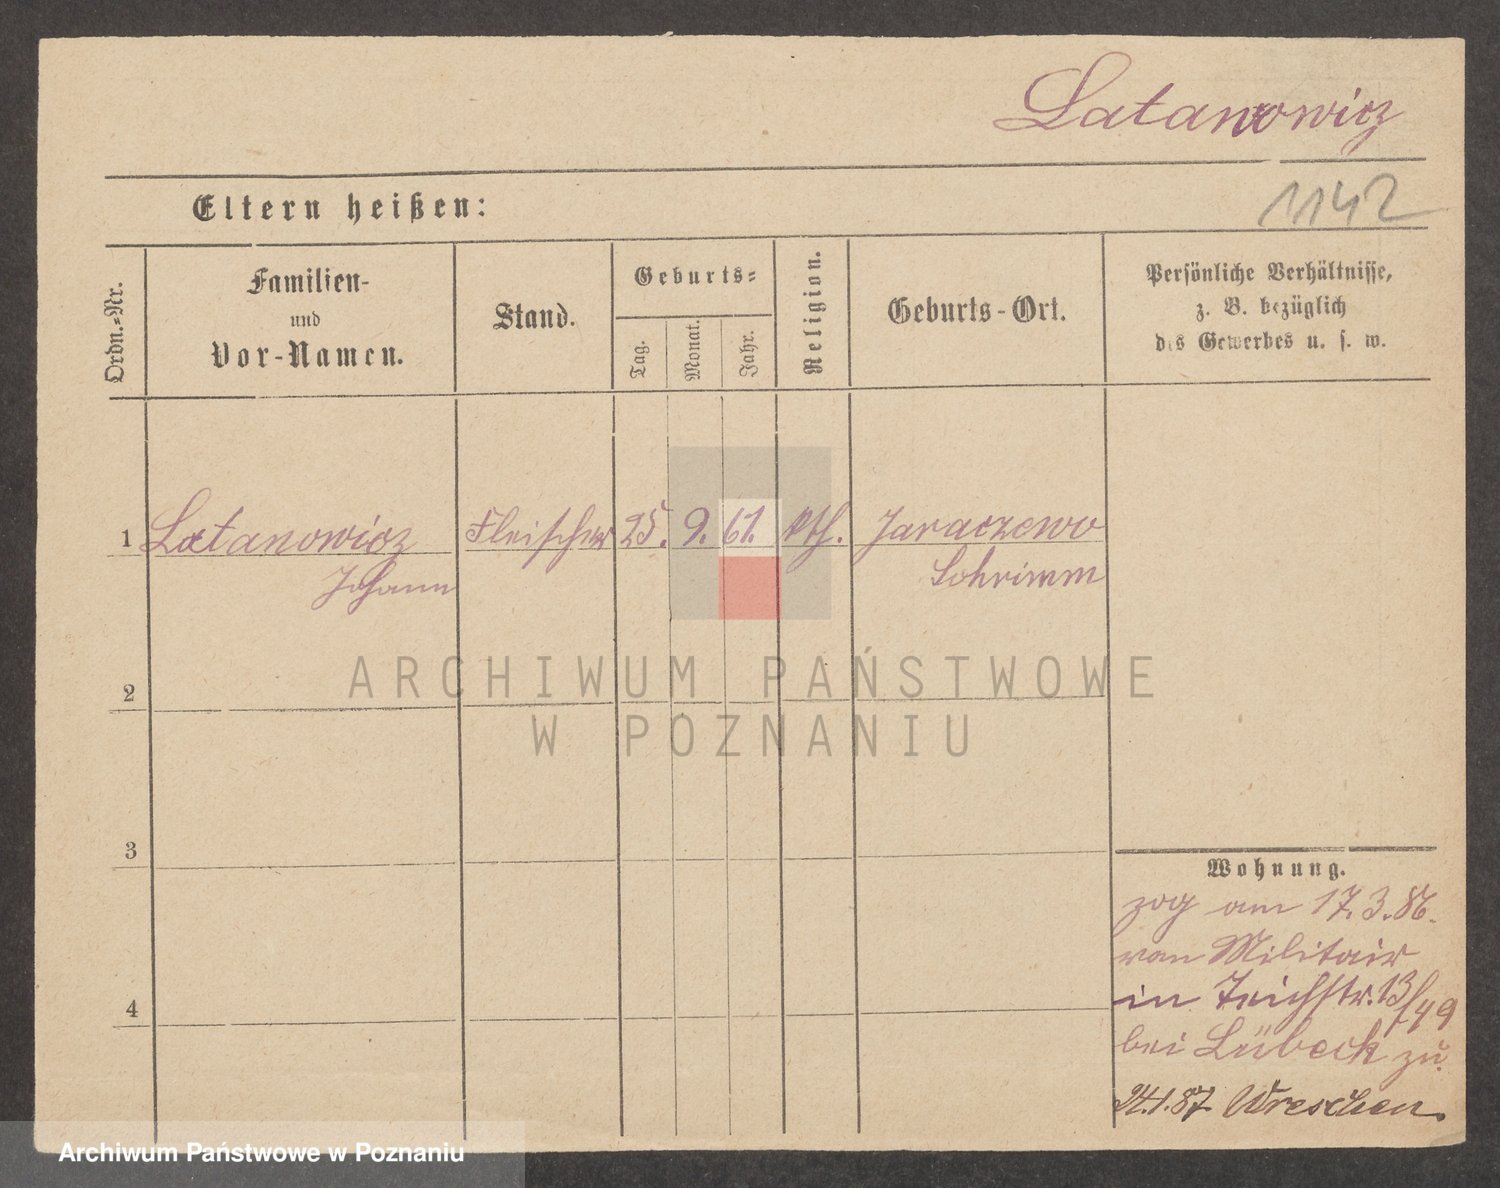 Latanowicz
Eltern heißen:
1142
Ordn.-Nr.
Familien-
und
Vor-Namen.
Stand.
Geburts-
Tag.
Monat.
Jahr.
Religion.
Geburts-Ort.
Persönliche Verhältnisse,
z. B. bezüglich
des Gewerbes u. s. w.
1 Latanowicz Fleischer 25. 9. 61. kth. Jaraczewo
Johann Schrimm
ARCHIWUM PAŃSTWOWE
W POZNANIU
2
3
4
Wohnung.
zog am 17.3.86.
von Militair
in Teichstr. 13/49
bei Lübeck zu.
24.1.87 Wreschen.
Archiwum Państwowe w Poznaniu